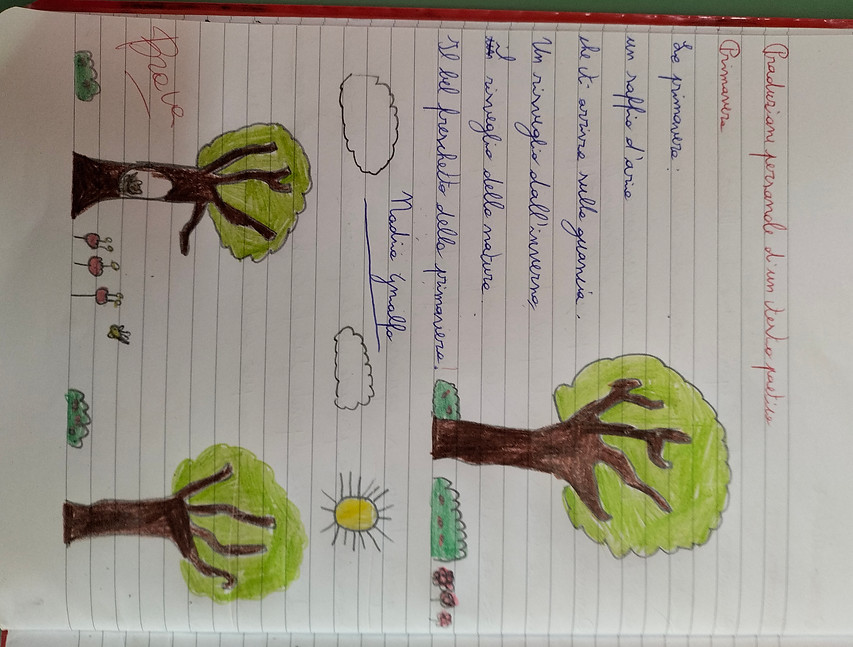 Produzione personale d'un testo poetico
Primavera
La primavera:
un soffio d'aria
che ti arriva sulla guancia.
Un risveglio dall'inverno,
il risveglio della natura.
Il bel freschetto della primavera!
Nadia Gnalfo